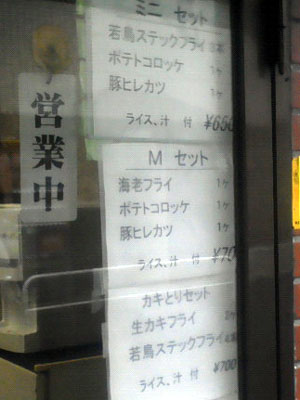 営業中
ミニ セット
若鳥ステックフライ 3本
ポテトコロッケ 1ヶ
豚ヒレカツ 1ヶ
ライス、汁 付 ¥650
M セット
海老フライ 1ヶ
ポテトコロッケ 1ヶ
豚ヒレカツ 1ヶ
ライス、汁 付 ¥70
カキとりセット
生カキフライ 2ヶ
若鳥ステックフライ
ライス、汁 付 ¥700